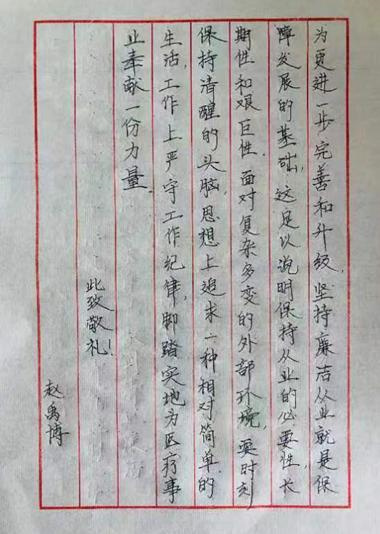 为更进一步完善和升级，坚持廉洁从业就是保
障发展的基础，这足以说明保持从业的必要性，长
期性和艰巨性。面对复杂多变的外部环境，要时刻
保持清醒的头脑，思想上追求一种相对简单的
生活，工作上严守工作纪律，脚踏实地为医疗事
业奉献一份力量。
此致敬礼！
赵禹博